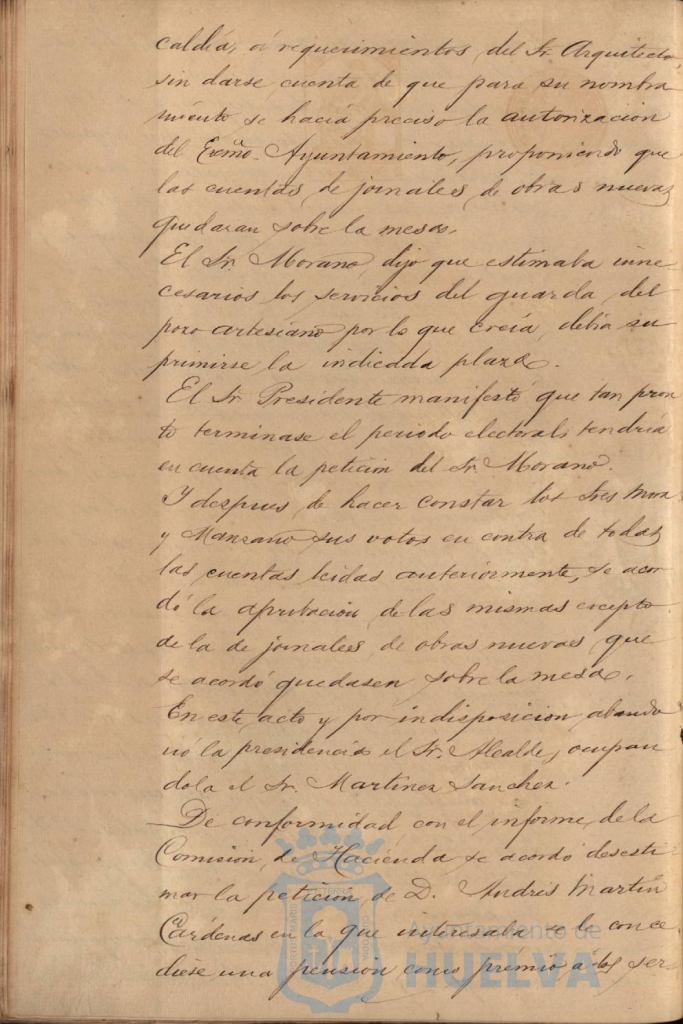 caldía, á requerimientos del Sr. Arquitecto,
sin darse cuenta de que para su nombra
miento se hacía preciso la autorizacion
del Excmo. Ayuntamiento, proponiendo que
las cuentas de jornales de obras nuevas
quedaran sobre la mesa.
El Sr. Morano dijo que estimaba inne
cesarios los servicios del guarda del
pozo artesiano por lo que creía debia su
primirse la indicada plaza.
El Sr. Presidente manifestó que tan pron
to terminase el periodo electoral tendría
en cuenta la peticion del Sr. Morano.
Y despues de hacer constar los Sres Mora
y Manzano sus votos en contra de todas
las cuentas leidas anteriormente, se acor
dó la aprobacion de las mismas excepto
de la de jornales de obras nuevas que
se acordó quedasen sobre la mesa.
En este acto y por indisposicion abando
nó la presidencia el Sr. Alcalde, ocupan
dola el Sr. Martinez Sanchez.
De conformidad con el informe de la
Comision de Hacienda se acordó desesti
mar la peticion de D. Andrés Martin
Cárdenas en la que interesaba se le conce
diese una pension como prémio á los ser
Ayuntamiento de
HUELVA